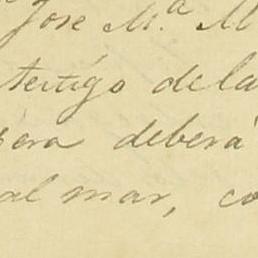 José M.ª M
testigo de la
pera deberá
al mar, co